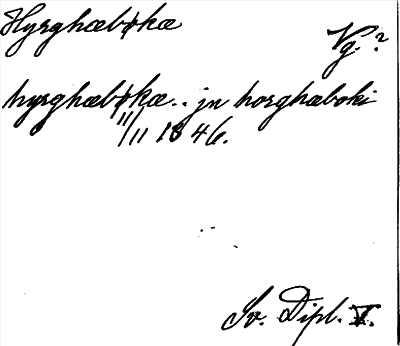 Hyrghæbøkæ
Vg. ?
hyrghæbøkæ .. jn horghæboki
11/11 1346.
Sv. Dipl. V.